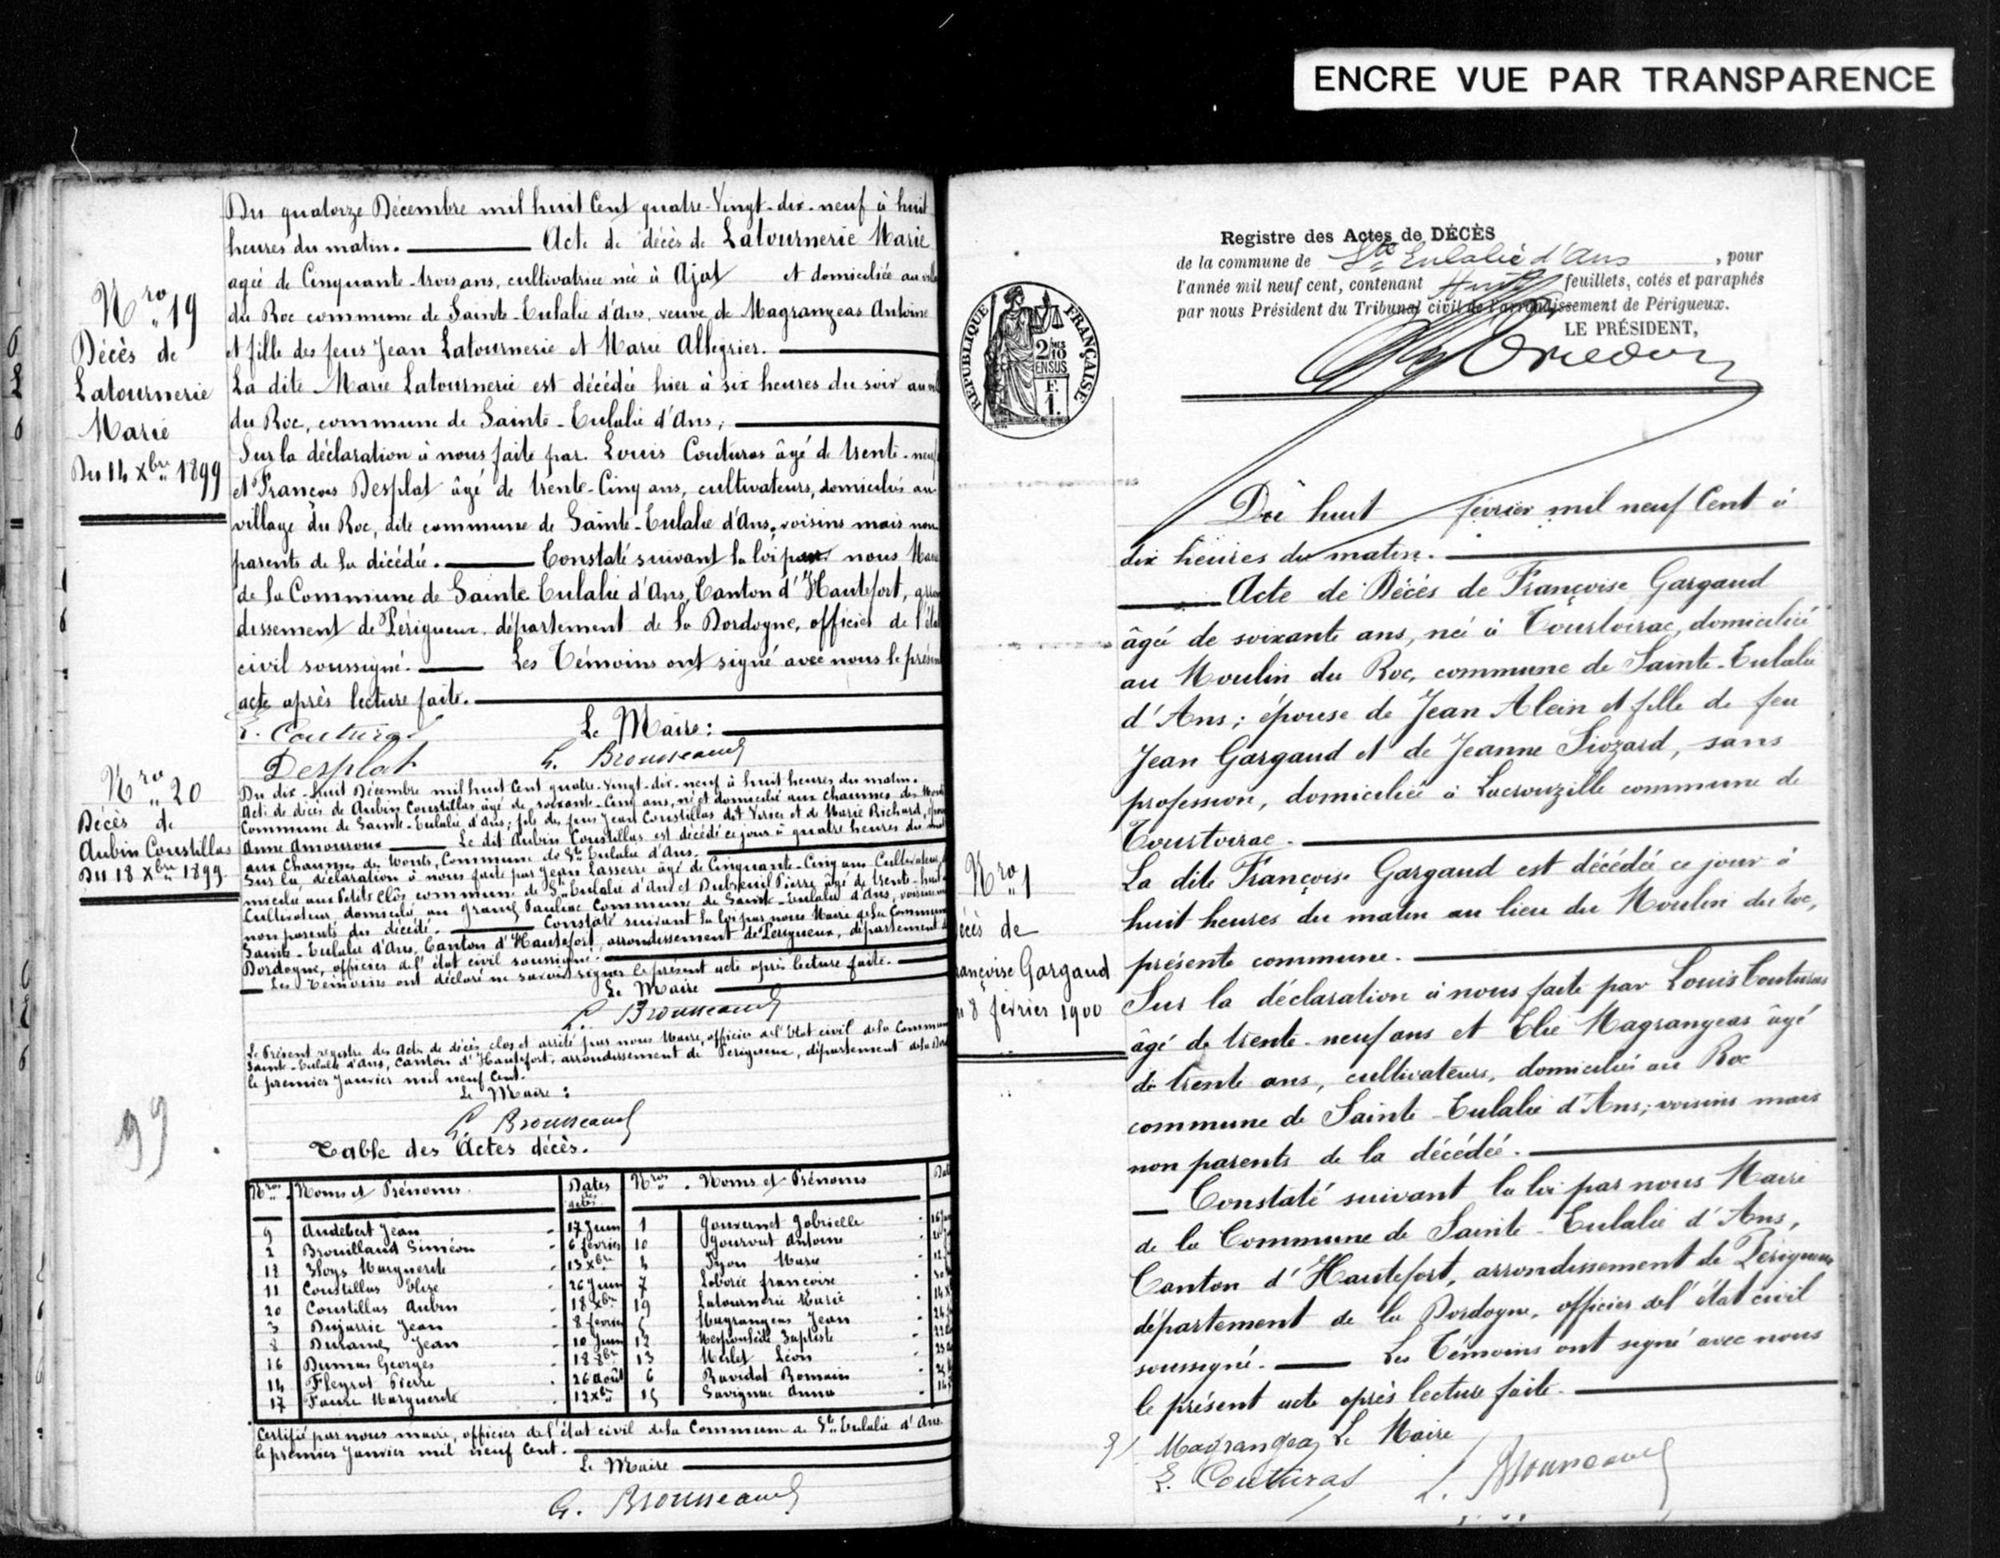 ENCRE VUE PAR TRANSPARENCE
Nro 19
Décès de
Latournerie
Marie
Du 14 Xbre 1899
Du quatorze Décembre mil huit Cent quatre-Vingt-dix-neuf à huit
heures du matin. Acte de décès de Latournerie Marie
agée de Cinquante-trois ans, cultivatrice née à Ajat et domiciliée au
du Roc commune de Sainte-Eulalie d'Ans, veuve de Magrangeas Antoine
et fille des feus Jean Latournerie et Marie Allegrier.
La dite Marie Latournerie est décédée hier à six heures du soir au
du Roc, commune de Sainte-Eulalie d'Ans;
Sur la déclaration à nous faite par Louis Couturas âgé de trente-neuf
et François Desplat âgé de trente-Cinq ans, cultivateurs, domiciliés au
village du Roc, dite commune de Sainte-Eulalie d'Ans, voisins mais non
parents de la décédée. Constaté suivant la loi par nous Maire
de la Commune de Sainte Eulalie d'Ans, Canton d'Hautefort, arron
dissement de Périgueux, département de la Dordogne, officier de l'état
civil soussigné. Les Témoins ont signé avec nous le présent
acte après lecture faite.
L. Couturas Le Maire:
Desplat G. Brousseaud
Nro 20
Décès de
Aubin Coustillas
Du 18 Xbre 1899
Du dix-huit Décembre mil huit Cent quatre-vingt-dix-neuf à huit heures du matin.
Acte de décès de Aubin Coustillas âgé de soixante-Cinq ans, né et domicilié aux Chaumes des
Commune de Sainte-Eulalie d'Ans; fils des feus Jean Coustillas dit Verier et de Marie Richard,
Anne Amouroux Le dit Aubin Coustillas est décédé ce jour à quatre heures du
aux Chaumes de Commune de Ste Eulalie d'Ans.
Sur la déclaration à nous faite par Jean Lasserre âgé de Cinquante-Cinq ans Cultivateur,
micilié aux Petits Clos commune de Ste Eulalie d'Ans et Dubreuil Pierre âgé de trente-huit
Cultivateur domicilié au grand Pauliac Commune de Sainte-Eulalie d'Ans, voisins
non parents du décédé. Constaté suivant la loi par nous Maire de la Commune
Sainte-Eulalie d'Ans, Canton d'Hautefort, arrondissement de Périgueux, département
Dordogne, officier de l'état civil soussigné.
Les Témoins ont déclaré ne savoir signer le présent acte après lecture faite.
Le Maire
G. Brousseaud
Le Présent registre des Acts de décès clos et arrêté par nous Maire, officier de l'Etat civil de la Commune
Sainte-Eulalie d'Ans, Canton d'Hautefort, arrondissement de Périgueux, département de la
le premier Janvier mil neuf Cent.
Le Maire:
G. Brousseaud
99
Table des Actes décès.
Nros Noms et Prénoms Dates des actes Nros Noms et Prénoms
9 Audebert Jean 17 Juin 1 Gouvernet Gabrielle
2 Brouillaud Siméon 6 février 10 Gourvat Antoine
18 Marguerite 13 Xbre 4 Marie
11 Coustillas Elise 26 Juin 7 Laborie françoise
20 Coustillas Aubin 18 Xbre 19 Latournerie Marie
3 Dujarric Jean 8 février 5 Magrangeas Jean
8 Durand Jean 10 Juin 12 Baptiste
16 Dumas Georges 18 8bre 13 Merlet Léon
14 Fleyrat Pierre 26 Août 6 Ravidat Romain
17 Faure Marguerite 12 Xbre 15 Savignac Anna
Certifié par nous maire, officier de l'état civil de la Commune de Ste Eulalie d'Ans
le premier Janvier mil neuf Cent.
Le Maire
G. Brousseaud
Registre des Actes de DÉCÈS
de la commune de Ste Eulalie d'Ans, pour
l'année mil neuf cent, contenant Huit feuillets, cotés et paraphés
par nous Président du Tribunal civil de l'arrondissement de Périgueux.
LE PRÉSIDENT,
RÉPUBLIQUE FRANÇAISE
2/10 EN SUS
F.
1.
Nro 1
écès de
rançoise Gargaud
u 8 février 1900
Du huit février mil neuf Cent à
dix heures du matin.
Acte de Décès de Françoise Gargaud
âgée de soixante ans, née à Tourtoirac, domiciliée
au Moulin du Roc, commune de Sainte-Eulalie
d'Ans; épouse de Jean Alein et fille de feu
Jean Gargaud et de Jeanne Siozard, sans
profession, domiciliée à Lacrouzille commune de
Tourtoirac.
La dite Françoise Gargaud est décédée ce jour à
huit heures du matin au lieu du Moulin du Roc,
présente commune.
Sur la déclaration à nous faite par Louis Couturas
âgé de trente-neuf ans et Elie Magrangeas âgé
de trente ans, cultivateurs, domiciliés au Roc
commune de Sainte-Eulalie d'Ans; voisins mais
non parents de la décédée.
Constaté suivant la loi par nous Maire
de la Commune de Sainte-Eulalie d'Ans,
Canton d'Hautefort, arrondissement de Périgueux
département de la Dordogne, officier de l'état civil
soussigné. Les Témoins ont signé avec nous
le présent acte après lecture faite.
Magrangeas Le Maire
L. Couturas G. Brousseaud